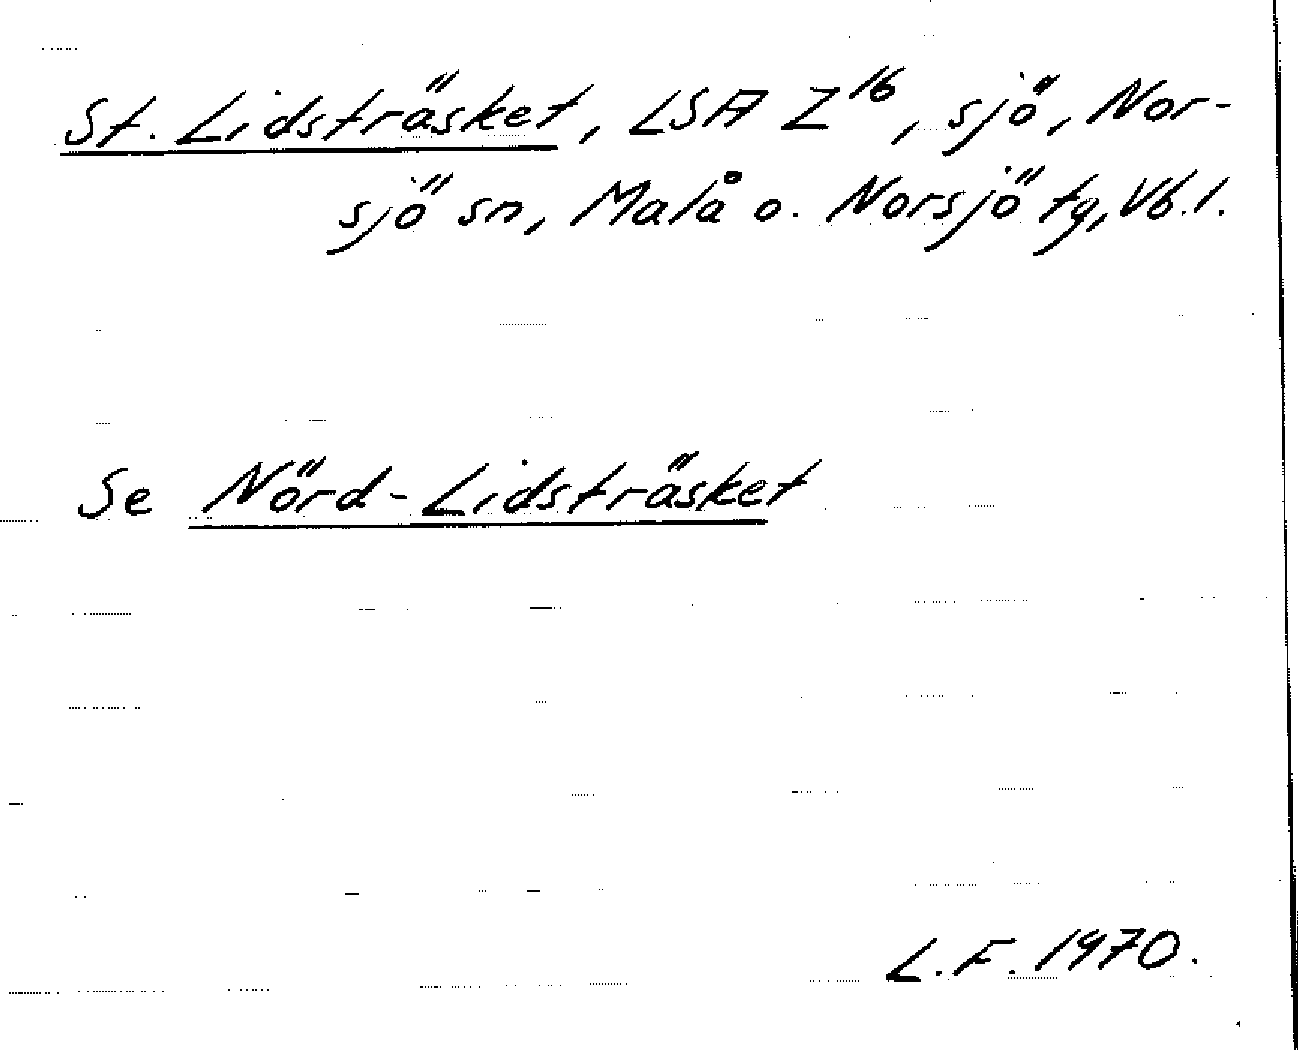 St. Lidsträsket, LSA Z16, sjö, Nor-
sjö sn, Malå o. Norsjö tg, Vb.l.
Se Nörd-Lidsträsket
L.F. 1970.